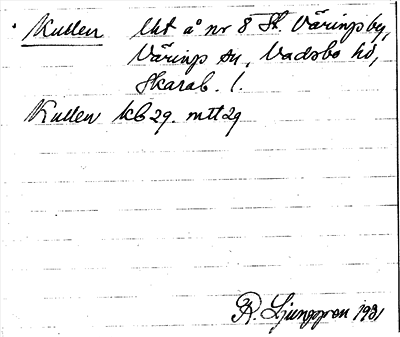 Kullen lht å nr 8 St. Väringsby,
Väring sn, Vadsbo hd,
Skarab. l.
Kullen kb 29. mtl 29
R. Ljunggren 1931